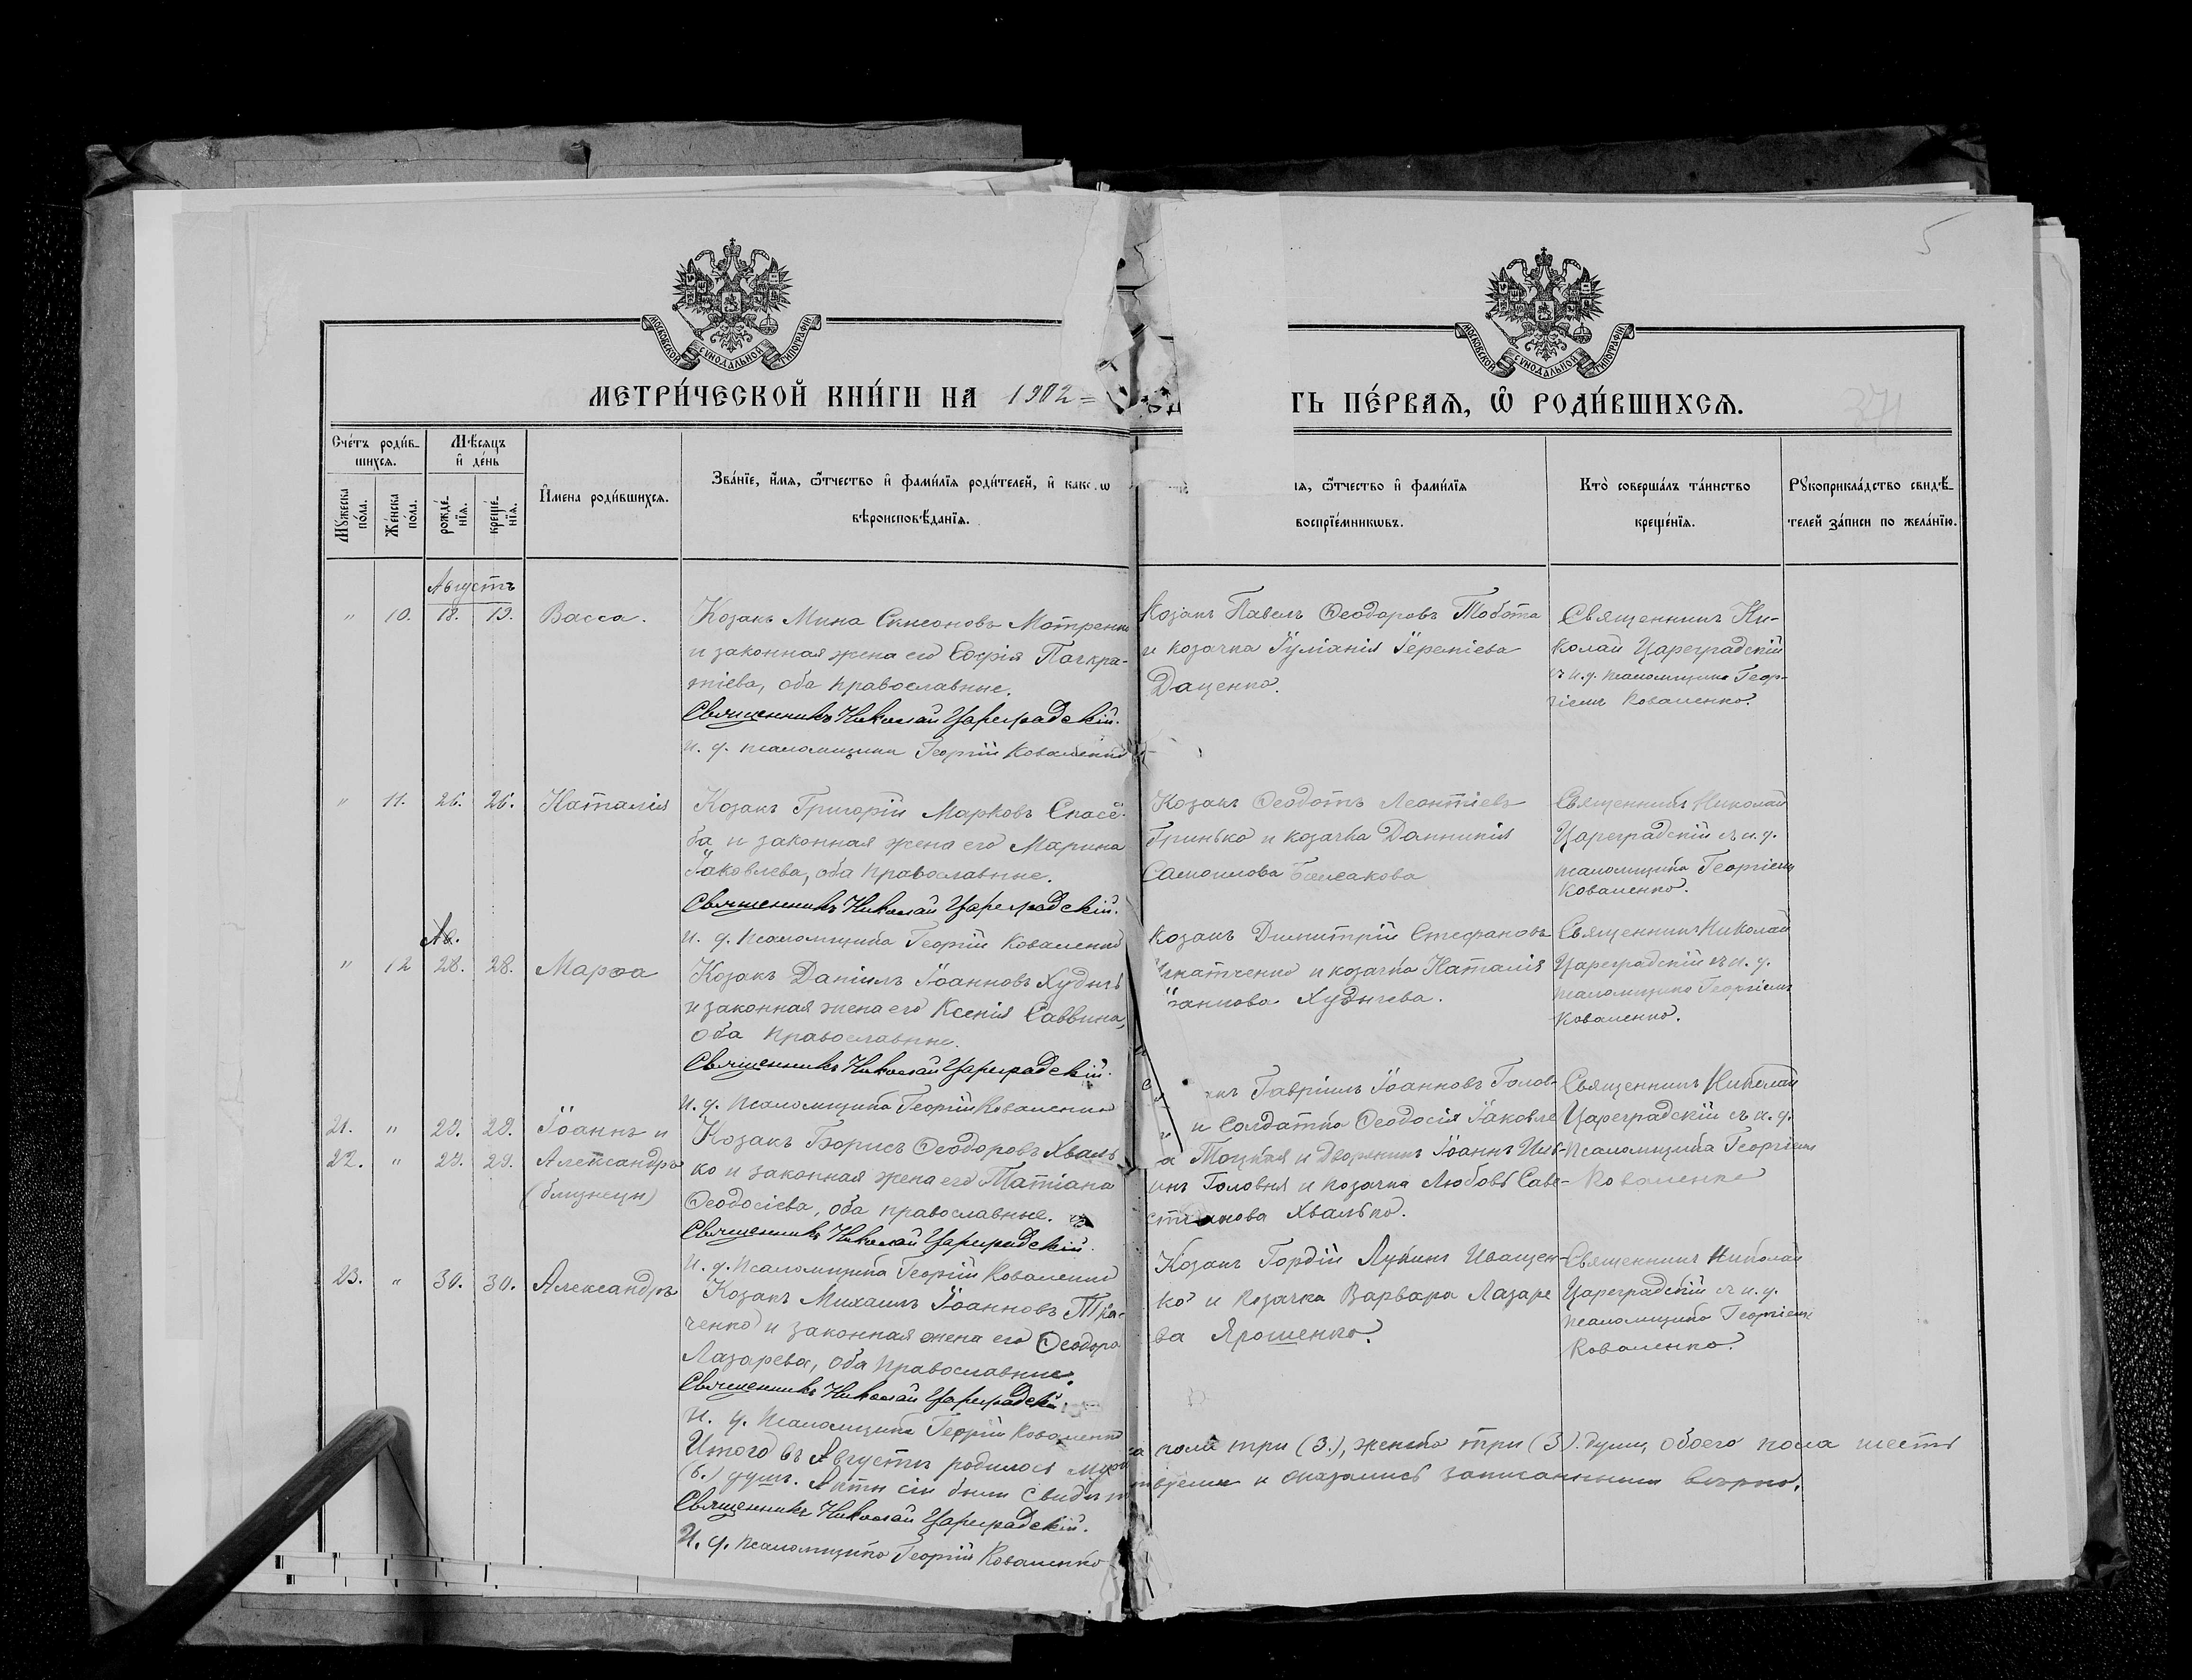 5
МОСКОВСКОЙ СѴНОДАЛЬНОЙ ТИПОГРАФІИ
МОСКОВСКОЙ СѴНОДАЛЬНОЙ ТИПОГРАФІИ
МЕТРИ́ЧЕСКОЙ КНИ́ГИ НА 1902 =
ТЬ ПЕ́РВАѦ, Ѡ РОДИ́ВШИХСѦ.
371
Счетъ роди́в-
шихсѧ.
Мѣсѧцъ
и де́нь
Мꙋ́жеска
по́ла.
Же́нска
по́ла.
рожде́-
нїѧ.
креще́-
нїѧ.
И҆мена роди́вшихсѧ.
Зва́нїе, и҆́мѧ, ѻ҆́тчество и҆ фами́лїѧ роди́телей, и҆ како́гѡ
вѣроисповѣ́данїѧ.
їѧ, ѻ҆́тчество и҆ фами́лїѧ
воспрїе́мникѡвъ.
Кто̀ соверша́лъ та́инство
креще́нїѧ.
Рꙋкоприкла́дство свидѣ́-
телей за́писи по жела́нїю.
Августъ
" 10. 18. 19. Васса.
Козакъ Мина Симеоновъ Мотренко
и законная жена его Софія Панкра-
тіева, оба православные.
Священникъ Николай Цареградскій.
И. д. псаломщика Георгій Коваленко
Козакъ Павелъ Ѳеодоровъ Тобота
и козачка Іуліанія Іереміева
Даценко.
Священникъ Ни-
колай Цареградскій
съ и. д. псаломщика Геор-
гіемъ Коваленко.
" 11. 26. 26. Наталія
Козакъ Григорій Марковъ Спасё-
ба и законная жена его Марина
Іаковлева, оба православные.
Священникъ Николай Цареградскій.
И. д. псаломщика Георгій Коваленко
Козакъ Ѳеодотъ Леонтіевъ
Гринько и козачка Домникія
Самоилова
Священникъ Николай
Цареградскій съ и. д.
псаломщика Георгіемъ
Коваленко.
Ав.
" 12 28. 28. Марѳа
Козакъ Даніилъ Іоанновъ Худичъ
и законная жена его Ксенія Саввина,
оба православные.
Священникъ Николай Цареградскій.
И. д. псаломщика Георгій Коваленко
Козакъ Димитрій Стефановъ
Игнатченко и козачка Наталія
Худичева.
Священникъ Николай
Цареградскій съ и. д.
псаломщика Георгіемъ
Коваленко.
21. " 29. 29. Іоаннъ и
22. " 29. 29. Александръ
(близнецы)
Козакъ Борисъ Ѳеодоровъ Хваль
ко и законная жена его Татіана
Ѳеодосіева, оба православные.
Священникъ Николай Цареградскій.
И. д. псаломщика Георгій Коваленко
Гавріилъ Іоанновъ Голов-
и солдатка Ѳеодосія Іаковле
а Тоцкая и Дворянинъ Іоаннъ
инъ Головня и козачка Любовь Сава-
стіанова Хвалько.
Священникъ Николай
Цареградскій съ и. д.
псаломщика Георгіемъ
Коваленко
23. " 30. 30. Александръ
Козакъ Михаилъ Іоанновъ Тка-
ченко и законная жена его Ѳеодора
Лазарева, оба православные.
Священникъ Николай Цареградскій.
И. д. псаломщика Георгій Коваленко
Козакъ Гордій Лукинъ Иващен-
ко и козачка Варвара Лазаре
ва Ярошенко.
Священникъ Николай
Цареградскій съ и. д.
псаломщика Георгіемъ
Коваленко.
Итого въ Августѣ родилось муж. пола три (3.), женска три (3). душъ, обоего пола шесть
(6.) душъ. Акты сіи были и оказались записанными вѣрно.
Священникъ Николай Цареградскій.
И. д. псаломщика Георгій Коваленко